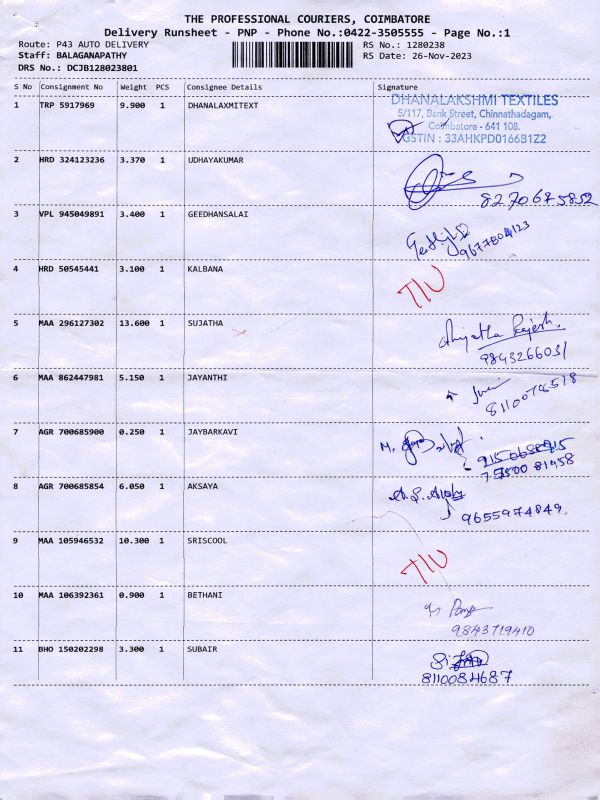 THE PROFESSIONAL COURIERS, COIMBATORE
Delivery Runsheet - PNP - Phone No.:0422-3505555 - Page No.:1
Route: P43 AUTO DELIVERY
RS No.: 1280238
Staff: BALAGANAPATHY
RS Date: 26-Nov-2023
DRS No.: DCJB128023801
S No Consignment No Weight PCS Consignee Details Signature
1 TRP 5917969 9.900 1 DHANALAXMITEXT
DHANALAKSHMI TEXTILES
5/117, Bank Street, Chinnathadagam,
Coimbatore - 641 108.
GSTIN : 33AHKPD0166B1Z2
2 HRD 324123236 3.370 1 UDHAYAKUMAR
8270675852
3 VPL 945049891 3.400 1 GEEDHANSALAI
9677804123
4 HRD 50545441 3.100 1 KALBANA
T/U
5 MAA 296127302 13.600 1 SUJATHA
Sujatha Rajesh.
9843266031
6 MAA 862447981 5.150 1 JAYANTHI
8110078518
7 AGR 700685900 0.250 1 JAYBARKAVI
M.
75500 81458
8 AGR 700685854 6.050 1 AKSAYA
9655974849.
9 MAA 105946532 10.300 1 SRISCOOL
T/U
10 MAA 106392361 0.900 1 BETHANI
9843719410
11 BHO 150202298 3.300 1 SUBAIR
8110084687